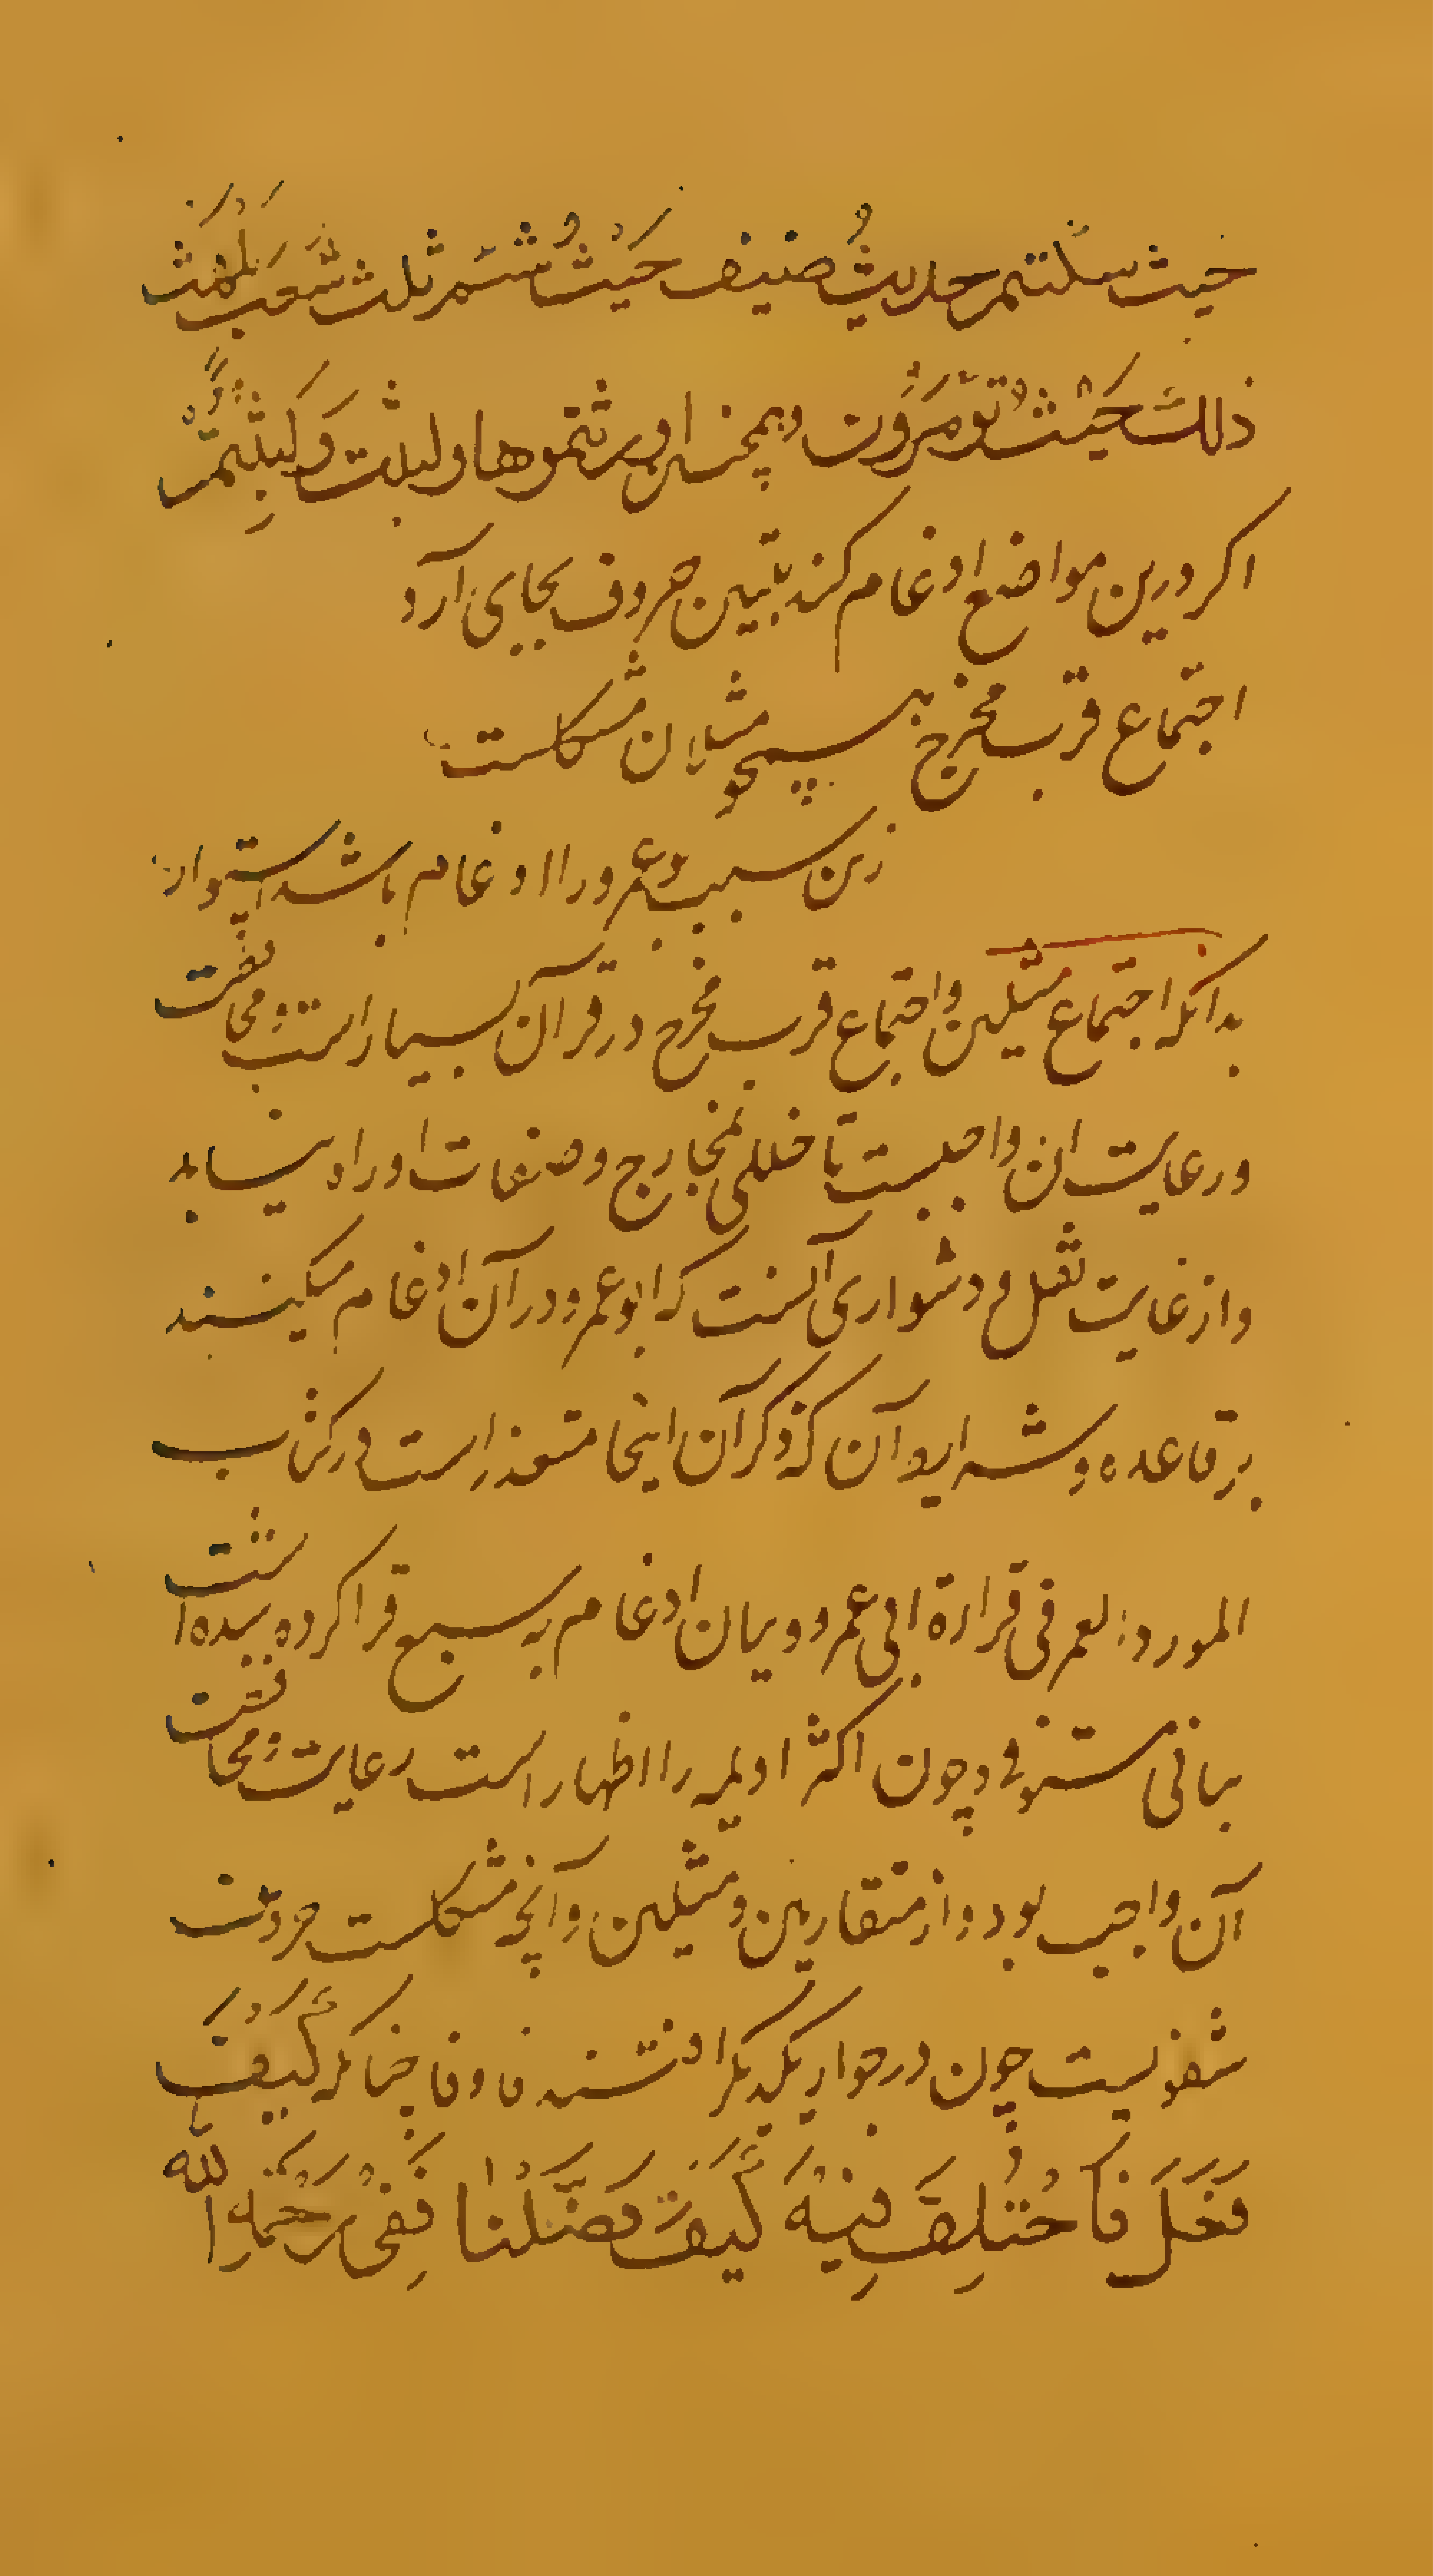 حیث سکنتم حدیثُ ضیف حَیْثُ شئتم ثلث شُعب یَلْهَثْ
ذلك حَیْثُ تُؤْمَرُونَ وهمچنین اورثتموها ولبثت وَلَبِثْتُمْ
اکر درین مواضع ادغام کند بتبیین حروف بجای آرد
اجتماع قرب مخرج همچو مثلان مشکلست
زین سبب بوعمرو را ادغام باشد استوار
بدانکه اجتماع مثلین واجتماع قرب مخرج در قرآن بسیار است ومحافظت
ورعایت ان واجبست تا خللی بمخارج وصفات او راه نیابد
واز غایت ثقل ودشواری آنست که ابوعمرو در آن ادغام میکند
بر قاعده وشرایط آن که ذکر آن اینجا متعذر است در کتاب
المورد لعمر فی قراءة ابی عمرو وبیان ادغام به سبع قرا کرده شده است
بیانی مستوفی وچون اکثر اوایمه را اظهار است رعایت ومحافظت
آن واجب بود واز متقاربین ومثلین وآنچه مشکلست حروف
شفویست چون در جوار یکدیکر افتند فا وفا چنانکه کَیْفَ
فَعَلَ فَاخْتُلِفَ فِیْهِ کَیْفَ فَضَّلْنَا فَفِیْ رَحْمَةِ الله